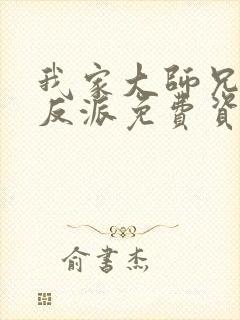 我家大師兄
反派免費資
俞書杰